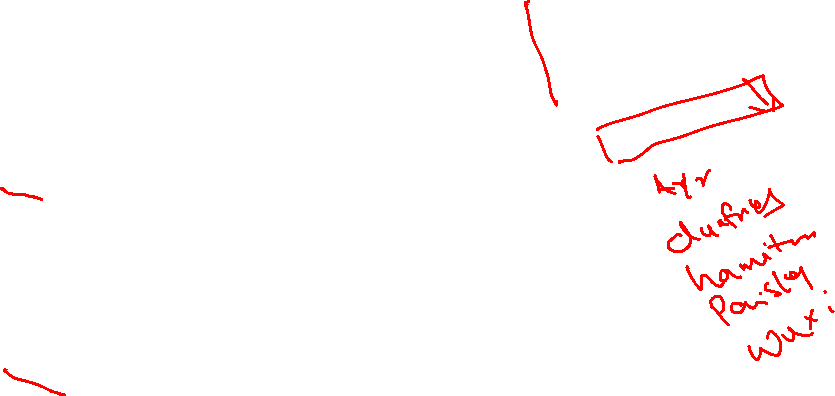 Ayr
dumfries
hamilton
Paisley
Wuxi